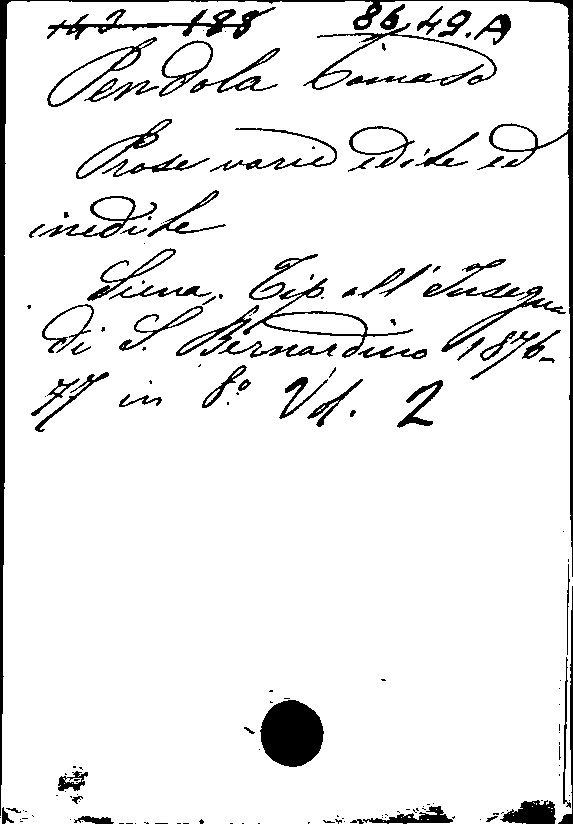 143 - 188 86.49.A
Pendola Tomaso
Prose varie edite ed
inedite
Siena, Tip. all'Insegna
di S. Bernardino 1876-
77 in 8º Vol. 2